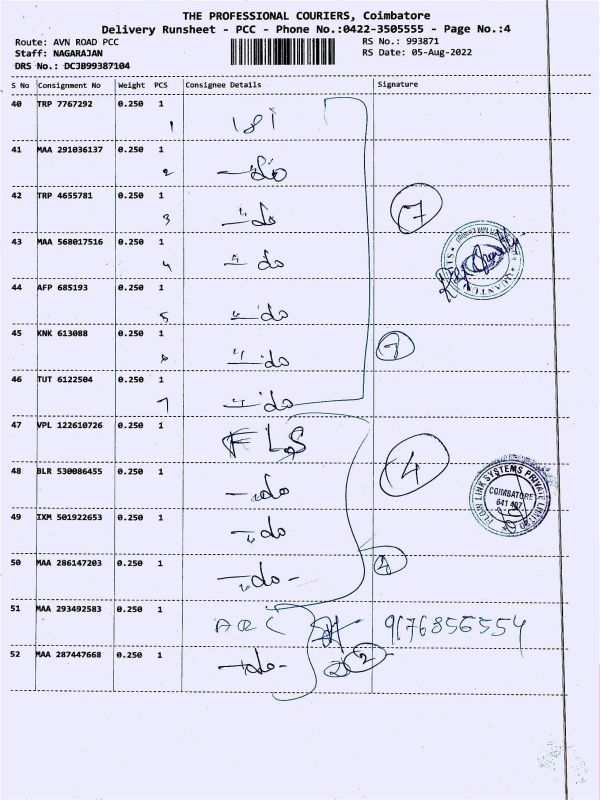 THE PROFESSIONAL COURIERS, Coimbatore
Delivery Runsheet - PCC - Phone No.:0422-3505555 - Page No.:4
Route: AVN ROAD PCC RS No.: 993871
Staff: NAGARAJAN RS Date: 05-Aug-2022
DRS No.: DCJB99387104
S No Consignment No Weight PCS Consignee Details Signature
40 TRP 7767292 0.250 1
1
41 MAA 291036137 0.250 1
2 do
42 TRP 4655781 0.250 1
3 do
7
43 MAA 568017516 0.250 1
4 do
44 AFP 685193 0.250 1
5 do
45 KNK 613088 0.250 1
6 do
7
46 TUT 6122504 0.250 1
7 do
47 VPL 122610726 0.250 1
FLS
48 BLR 530086455 0.250 1
do
4
FLOW LINK SYSTEMS PRIVATE LIMITED
COIMBATORE
641 407
49 IXM 501922653 0.250 1
do
50 MAA 286147203 0.250 1
-do-
4
51 MAA 293492583 0.250 1
ARC 9176856554
52 MAA 287447668 0.250 1
-do- 2